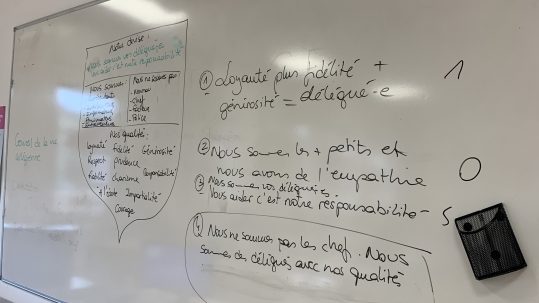 Notre devise:
Nous sommes vos délégué·es
vous aider c'est notre responsabilité
Nous sommes:
Nous ne sommes pas:
- Chef
- Police
Nos qualités:
Loyauté Fidélité Générosité
Respect prudence
Fiabilité charisme Responsabilité
à l'écoute Impartialité
Courage
Conseil de la vie
① Loyauté plus fidélité +
générosité = délégué·e
1
② Nous sommes les + petits et
nous avons de l'empathie
0
③ Nous sommes vos délégué·es.
Vous aider c'est notre responsabilité
5
④ Nous ne sommes pas les chefs. Nous
sommes des délégués avec nos qualités